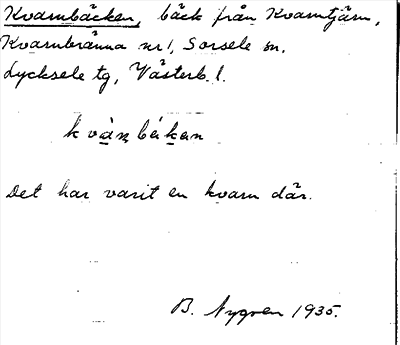 Kvarnbäcken, bäck från Kvarntjärn,
Kvarnbränna nr 1, Sorsele sn.
Lycksele tg, Västerb. l.
kvànbékan
Det har varit en kvarn där.
B. Nygren 1935.